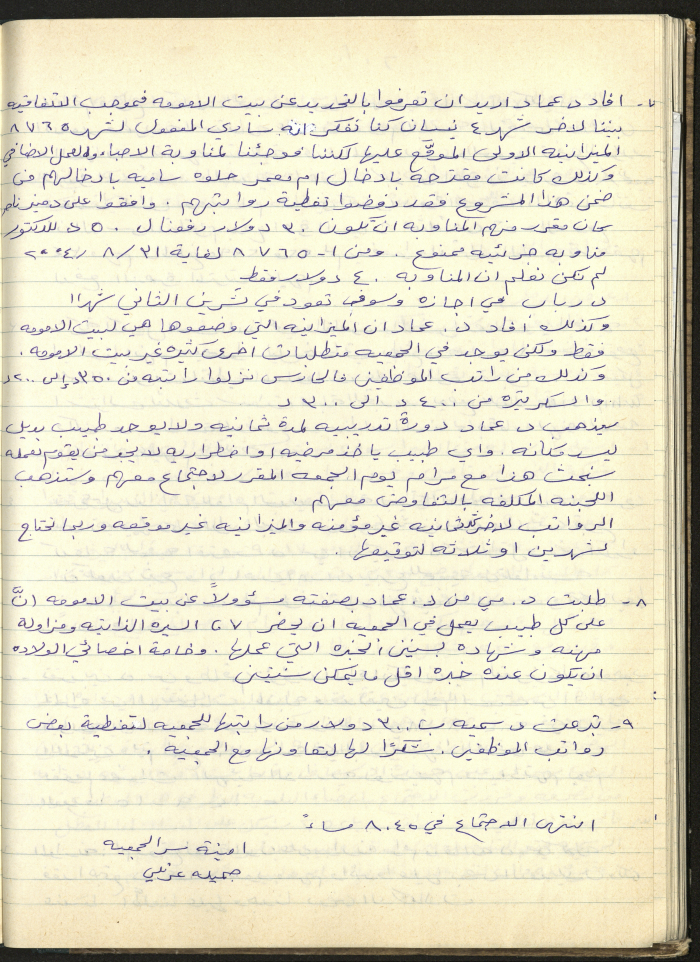 ٧- افاد د. عماد اريد ان تعرفوا بالتحديد عن بيت الامومه فبموجب الاتفاقيه
بيننا لاخر شهر ٤ نيسان كنا نفكر انه ساري المفعول لشهر ٥ ٦ ٧ ٨
الميزانيه الاولى الموقّع عليها لكننا فوجئنا لمناوبة الاطباء والعمل الاضافي
وكذلك كانت مقترحة بادخال ام معمر حلوه ساميه بادخالهم من
ضمن هذا المشروع فقد رفضوا تغطية رواتبهم . وافقوا على
كان مقرر منهم المناوبه ان تكون ٣٠ دولار ٥٠ د للدكتور
مناوبه جزئيه ممنوع . ومن ١- ٥ ٦ ٧ ٨ لغاية ٣١ /٨ /٢٠٠٤
لم نكن نعلم ان المناوبه ٤٠ دولار فقط
د. رباب في اجازه وسوف تعود في تشرين الثاني شهر ١١
وكذلك أفاد د. عماد ان الميزانيه التي وضعوها هي لبيت الامومه
فقط ولكن يوجد في الجمعيه متطلبات اخرى كثيره غير بيت الامومه .
وكذلك من راتب الموظفين فالحارس نزلوا راتبه من ٣٥٠ د إلى ٢٠٠ د
والسكرتيره من ٤٠٠ د الى ٣٠٠ د
سيذهب د. عماد دورة تدريبيه لمدة ثمانيه ولا يوجد طبيب بديل
ليسد مكانه . واي طبيب يأخذ مرضيه او اضطراريه لا يوجد من يقوم بعمله
سنبحث هذا مع مرام يوم الجمعه المقرر للاجتماع معهم وستذهب
اللجنه المكلفه بالتفاوض معهم .
الرواتب لاخر ثمانيه غير مؤمنه والميزانيه غير موقعه وربما نحتاج
لشهرين او ثلاثه لتوقيعها.
٨- طلبت د. مي من د. عماد بصفته مسؤولاً عن بيت الامومه انَّ
على كل طبيب يعمل في الجمعيه ان يحضر C V السيره الذاتيه ومزاولة
مهنه وشهاده بسنين الخبره التي عملها . وخاصة اخصائي الولاده
ان يكون عنده خبره اقل ما يمكن سنتين
٩- تبرعت د. سميه ب ٣٠٠ دولار من راتبها للجمعيه لتغطية بعض
رواتب الموظفين . شكرًا لها لتعاونها مع الجمعيه .
انتهى الاجتماع في ٨.٤٥ مساءً
امينة سر الجمعيه
جميله